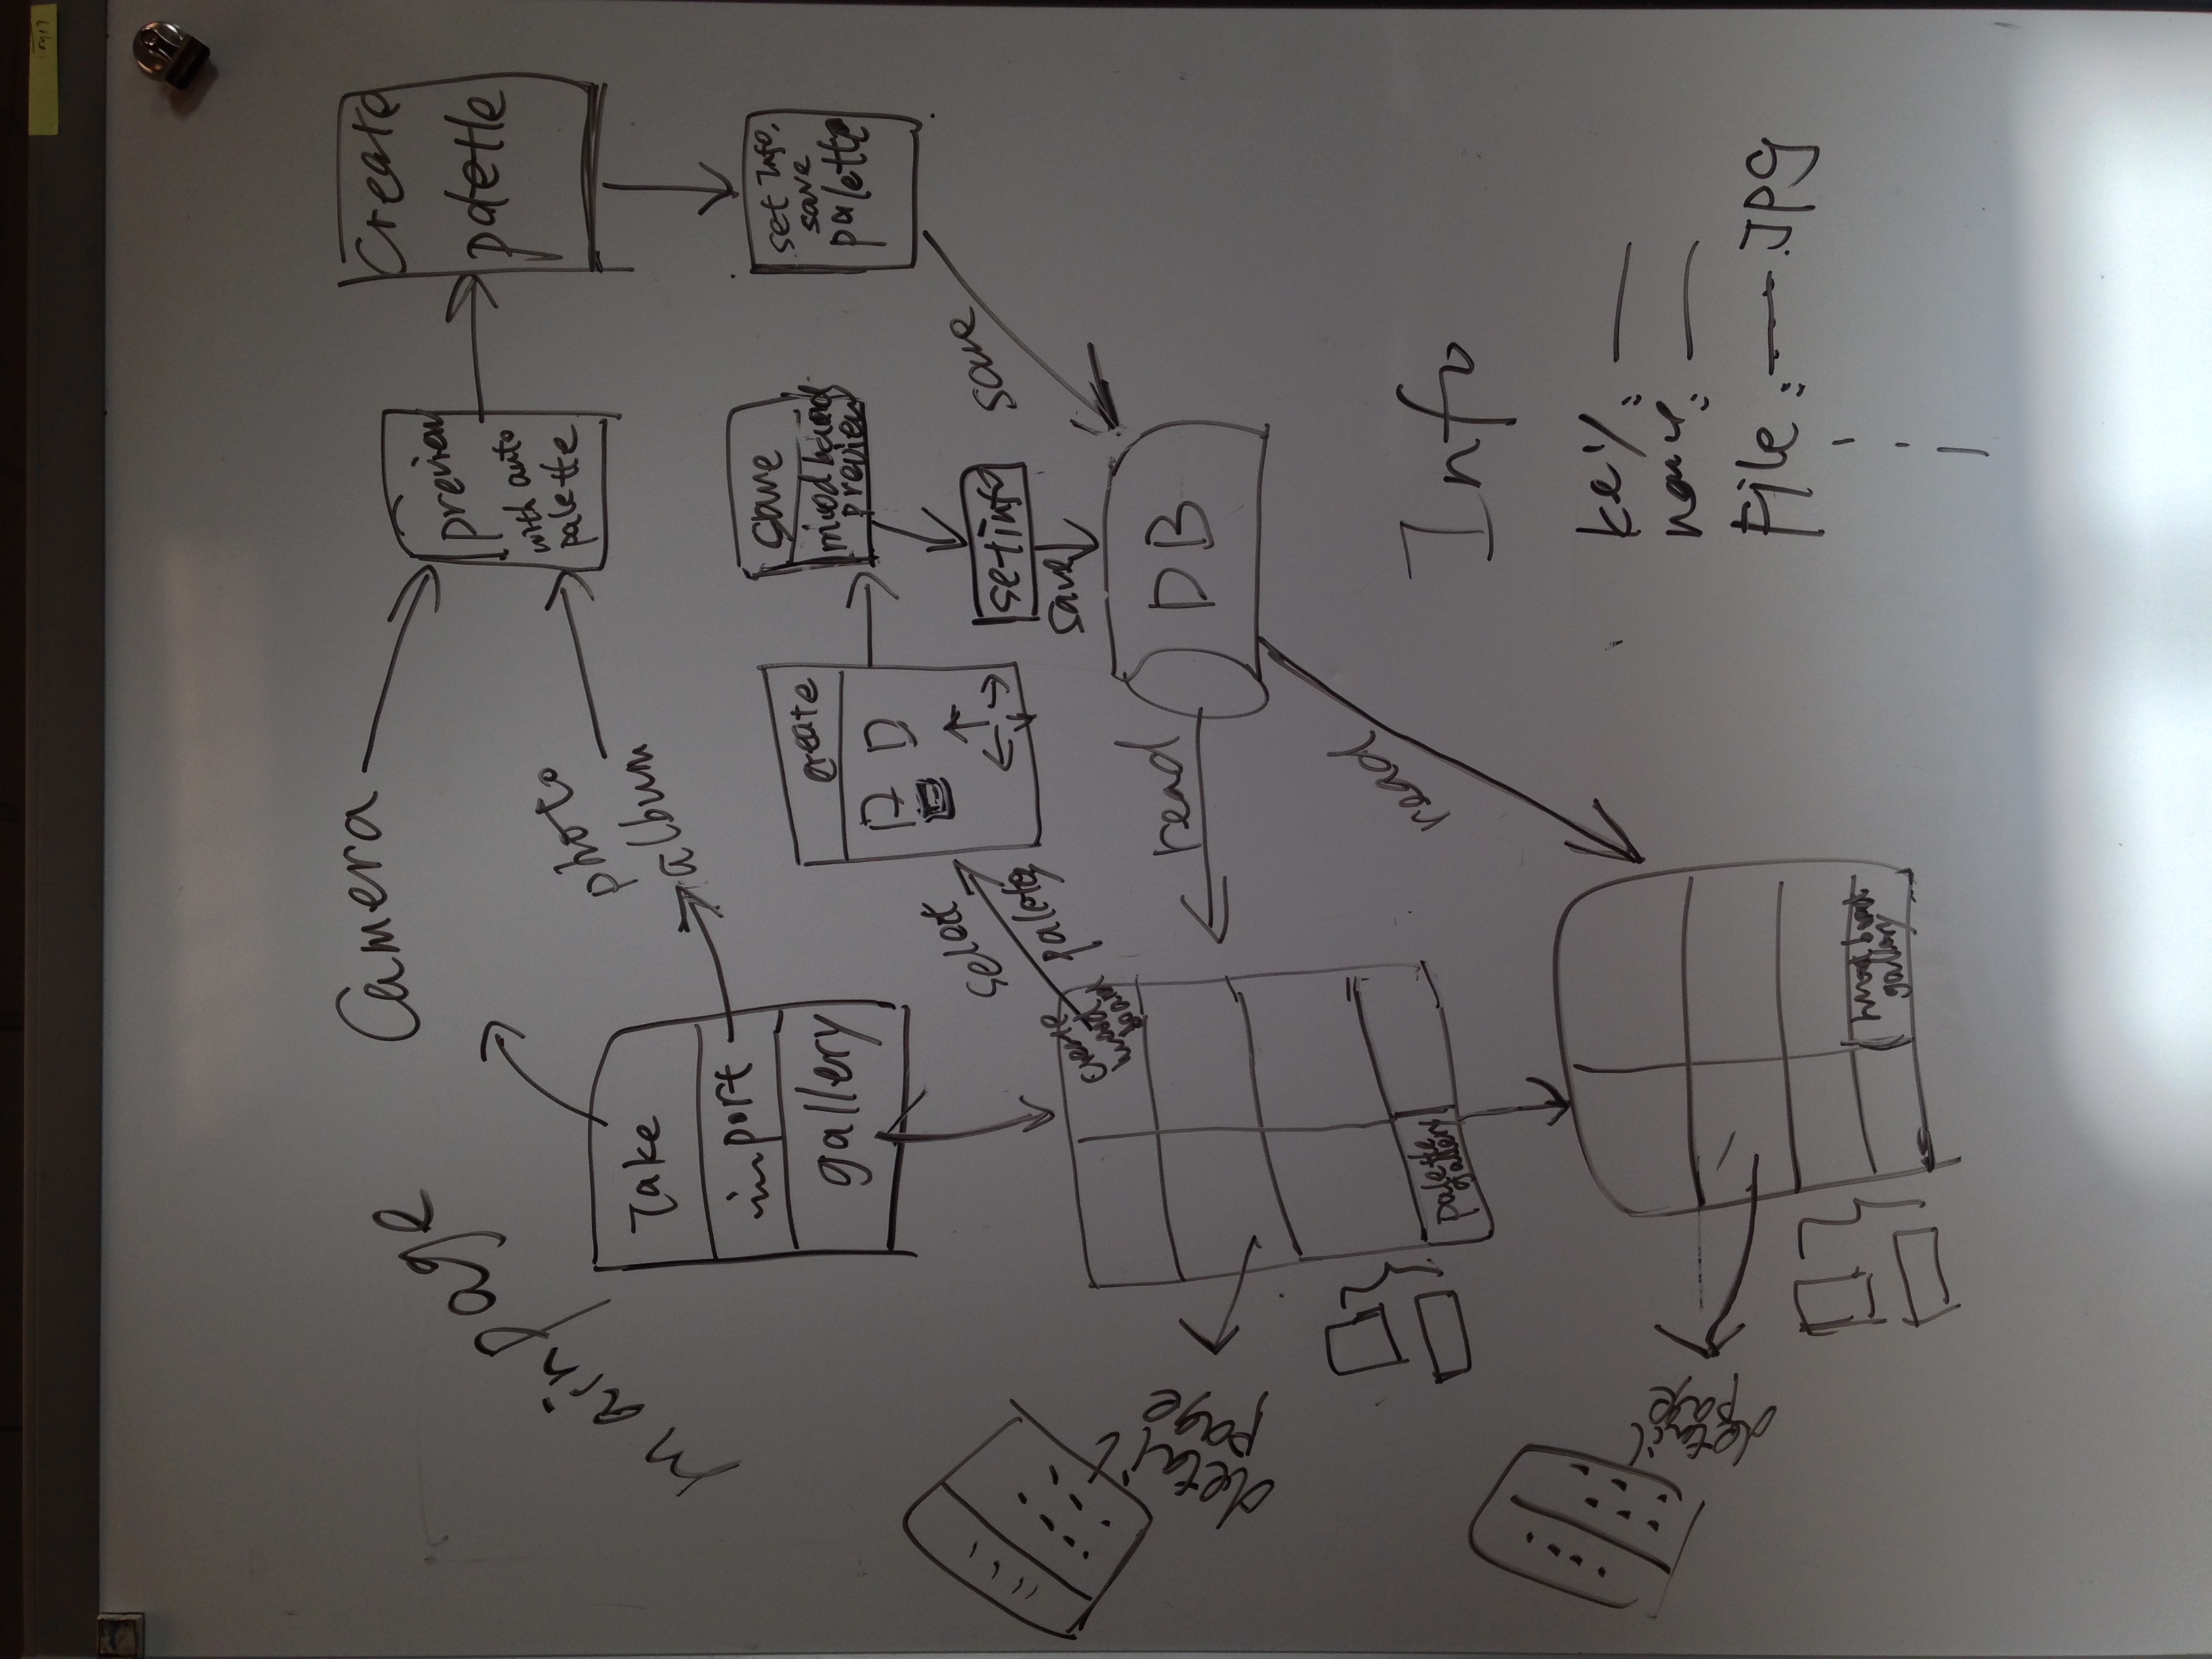 main page
Camera
Take
import
gallery
photo
album
preview
with auto
palette
Create
palette
set info,
save
palette
save
create
save
mood board
preview
set info
save
select
create
mood
board
DB
read
read
detail
page
palette
gallery
detail
page
mood board
gallery
Info
key:
name:
File: .JPG